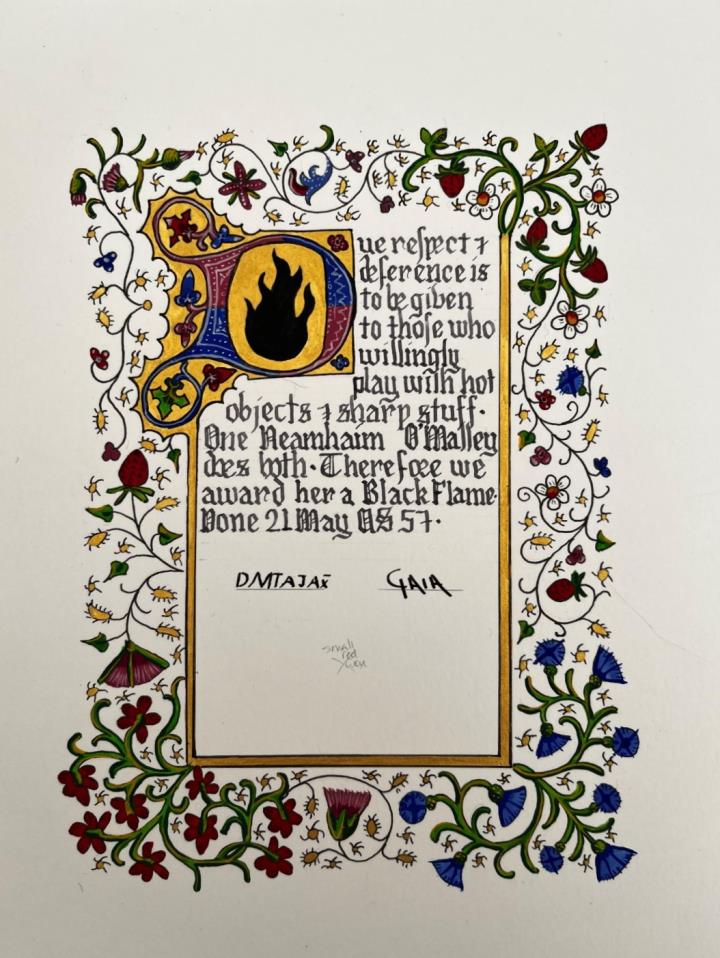 Due respect ⁊
deference is
to be given
to thoſe who
willingly
play with hot
objects ⁊ sharp stuff·
One Neamhaim O'Malley
does both· Therefore we
award her a Black Flame·
Done 21 May AS 57·
DMTAJAX GAIA
small
red